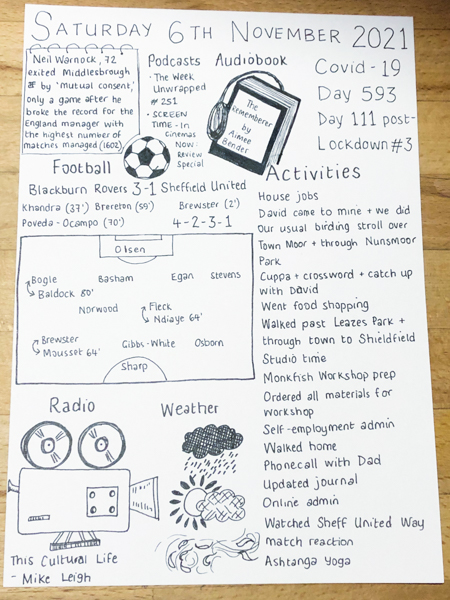 SATURDAY 6TH NOVEMBER 2021
Neil Warnock, 72
exited Middlesbrough
by 'mutual consent,'
only a game after he
broke the record for the
England manager with
the highest number of
matches managed (1602)
Podcasts
· The Week
Unwrapped
# 251
· SCREEN
TIME - In
cinemas
Now:
Review
Special
Audiobook
The
Rememberer
by
Aimee
Bender
Covid-19
Day 593
Day 111 post-
Lockdown #3
Football
Blackburn Rovers 3-1 Sheffield United
Khandra (37') Brereton (59') Brewster (2')
Poveda-Ocampo (70') 4-2-3-1
Olsen
Bogle Basham Egan Stevens
Baldock 80'
Norwood Fleck
Ndiaye 64'
Brewster Gibbs-White Osborn
Mousset 64'
Sharp
Radio
This Cultural Life
- Mike Leigh
Weather
Activities
House jobs
David came to mine + we did
our usual birding stroll over
Town Moor + through Nunsmoor
Park
Cuppa + crossword + catch up
with David
Went food shopping
Walked past Leazes Park +
through town to Shieldfield
Studio time
Monkfish Workshop prep
Ordered all materials for
workshop
Self-employment admin
Walked home
Phonecall with Dad
Updated journal
Online admin
Watched Sheff United Way
match reaction
Ashtanga Yoga